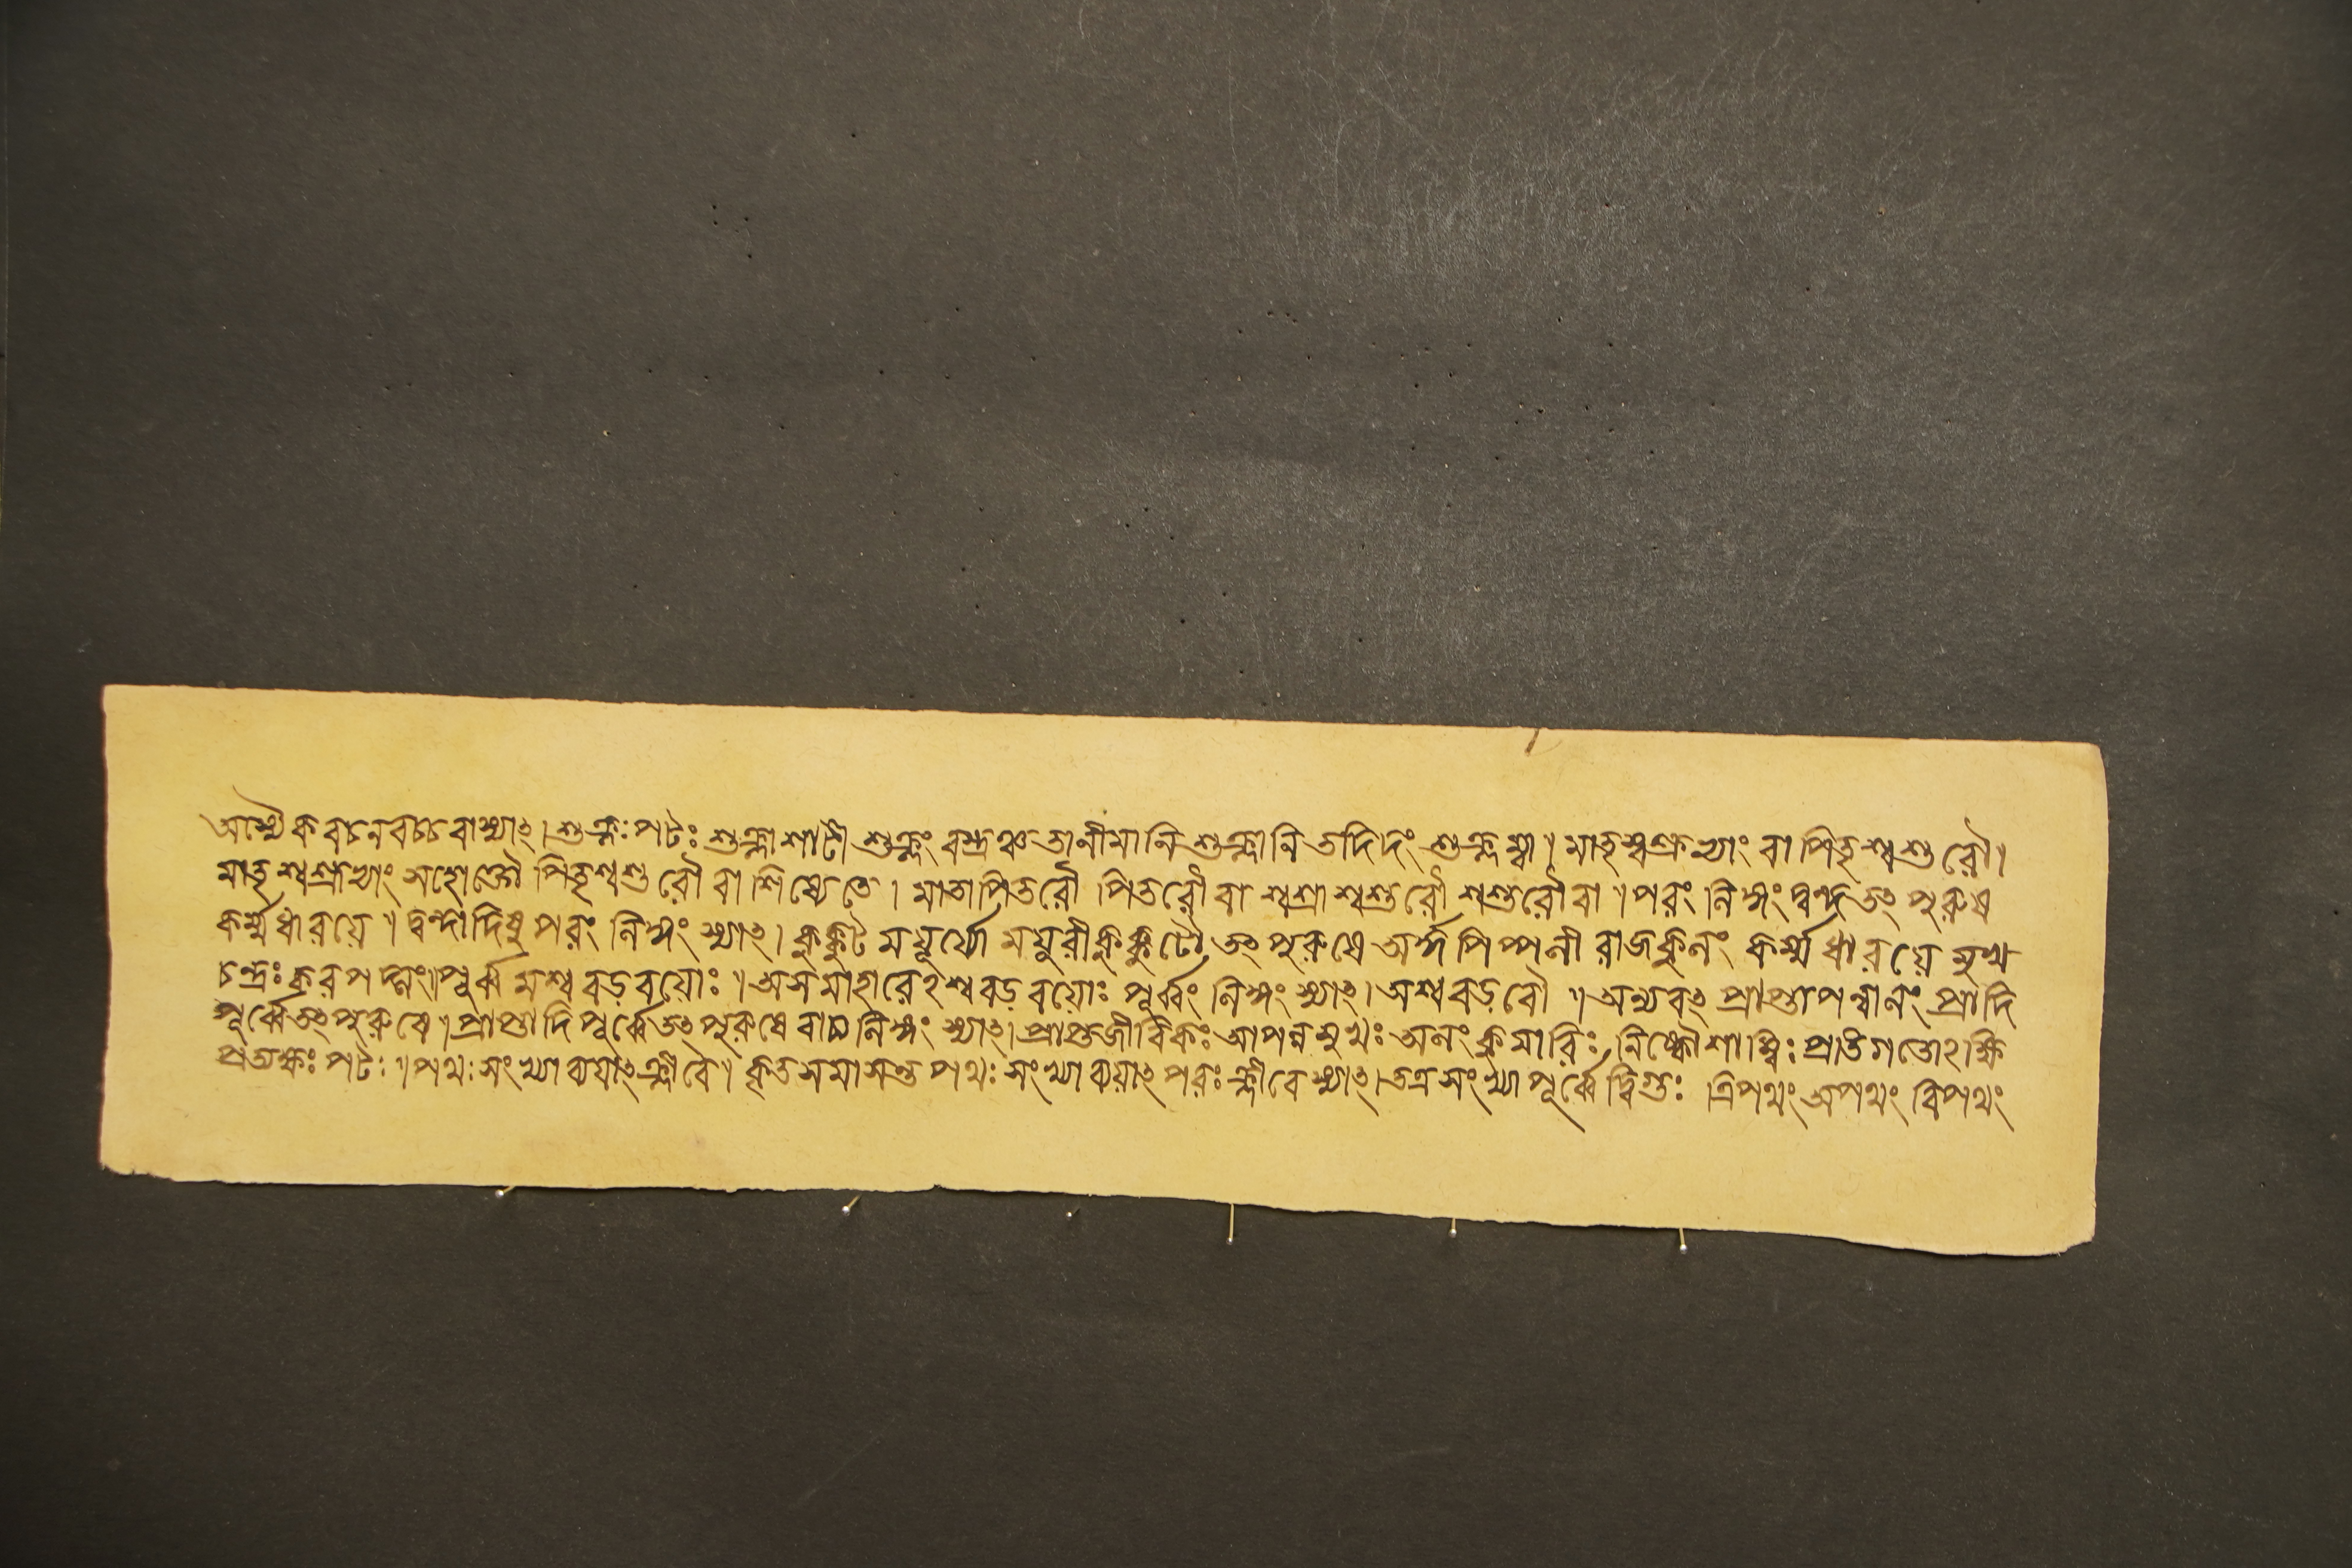 অস্যৈকবচনবচ্চ বা স্যাৎ। শুক্লঃ পটঃ শুক্লা শাটী শুক্লং বস্ত্রঞ্চ তানীমানি শুক্লানি তদিদং শুক্লম্বা। মাতৃশ্বশ্রুভ্যাং বা পিতৃশ্বশুরৌ।
মাতৃশ্বশ্রুভ্যাং সহোক্তৌ পিতৃশ্বশুরৌ বা শিষ্যেতে। মাতাপিতরৌ পিতরৌ বা শ্বশ্রূশ্বশুরৌ শশুরৌ বা॥ পরং লিঙ্গং দ্বন্দ্বতৎপুরুষে
কর্ম্মধারয়ে॥ দ্বন্দাদিষু পরং লিঙ্গং স্যাৎ। কুক্কুটময়ূর্য্যৌ ময়ুরীকুক্কুটৌ তৎপুরুষে অর্দ্ধপিপ্পলী রাজকুলং কর্ম্মধারয়ে মুখ
চন্দ্রঃ করপদ্মং॥ পূর্ব্বমশ্ববড়বয়োঃ॥ অসমাহারেঽশ্ববড়বয়োঃ পূর্ব্বং লিঙ্গং স্যাৎ। অশ্ববড়বৌ॥ অন্যবৎ প্রাপ্তাপন্নালং প্রাদি
পূর্ব্বে তৎপুরুষে॥ প্রাপ্তাদিপূর্ব্বে তৎপুরুষে বাচ্যলিঙ্গং স্যাৎ। প্রাপ্তজীবিকঃ আপন্নসুখঃ অলংকুমারিঃ নিষ্কৌশাম্বিঃ প্রতিগতোঽক্ষি
প্রত্যক্ষঃ পটঃ॥ পথঃ সংখ্যাব্যয়াৎ ক্লীবে॥ কৃতসমাসান্ত পথঃ সংখ্যাব্যয়াৎ পরঃ ক্লীবে স্যাৎ। তত্র সংখ্যাপূর্ব্বে দ্বিগুঃ ত্রিপথং অপথং বিপথং